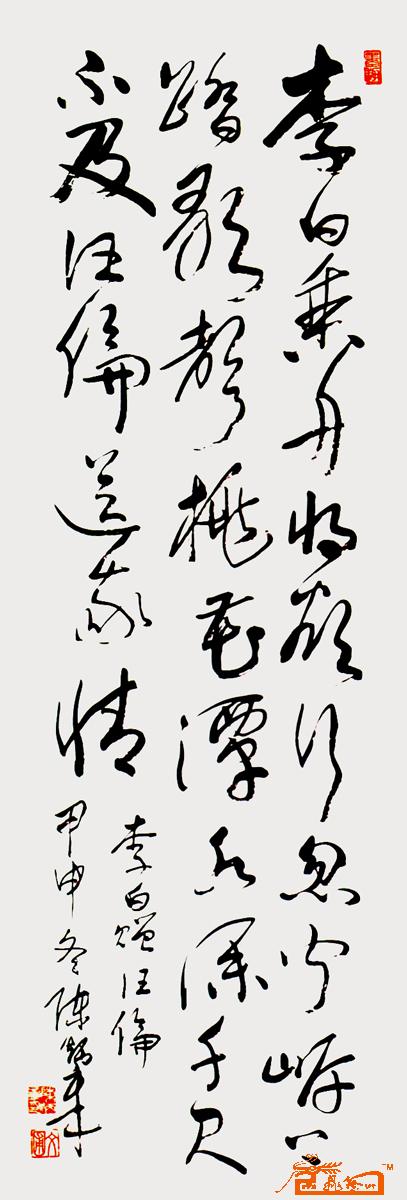 李白乘舟将欲行忽闻岸上
踏歌声桃花潭水深千尺
不及汪伦送我情
李白赠汪伦
甲申冬陈